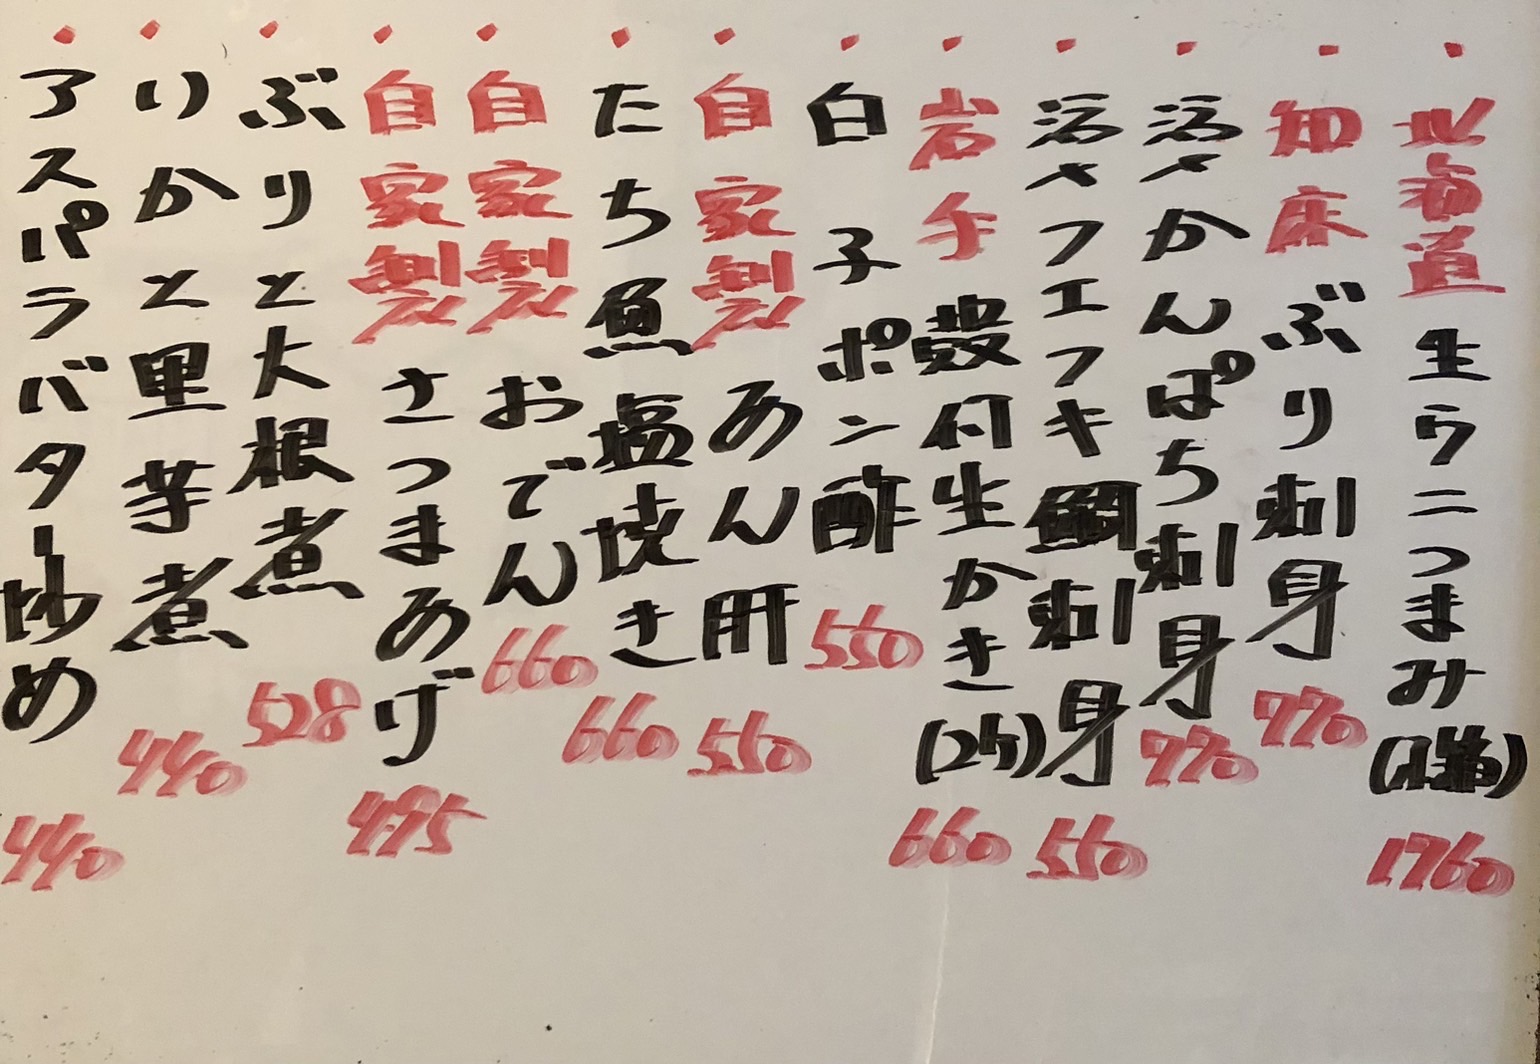 ・北海道生ウニつまみ(1箱)1760
・知床ぶり刺身770
・活〆かんぱち刺身770
・活〆フエフキ鯛刺身550
・岩手殻付生かき(2ケ)660
・白子ポン酢550
・自家製あん肝550
・たち魚塩焼き660
・自家製おでん660
・自家製さつまあげ495
・ぶりと大根煮528
・いかと里芋煮440
・アスパラバター炒め440